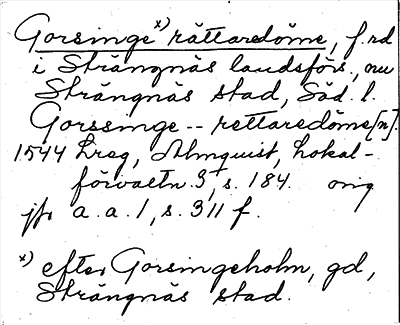 Gorsinge x) rättaredöme, f.rd
i Strängnäs landsförs., nu
Strängnäs stad, Söd. l.
Gorssinge -- rettaredöme[n].
1544 Lreg, Almquist, Lokal-
förvaltn. 3, s. 184. orig
jfr a.a. 1, s. 311 f.
x) efter Gorsingeholm, gd,
Strängnäs stad.